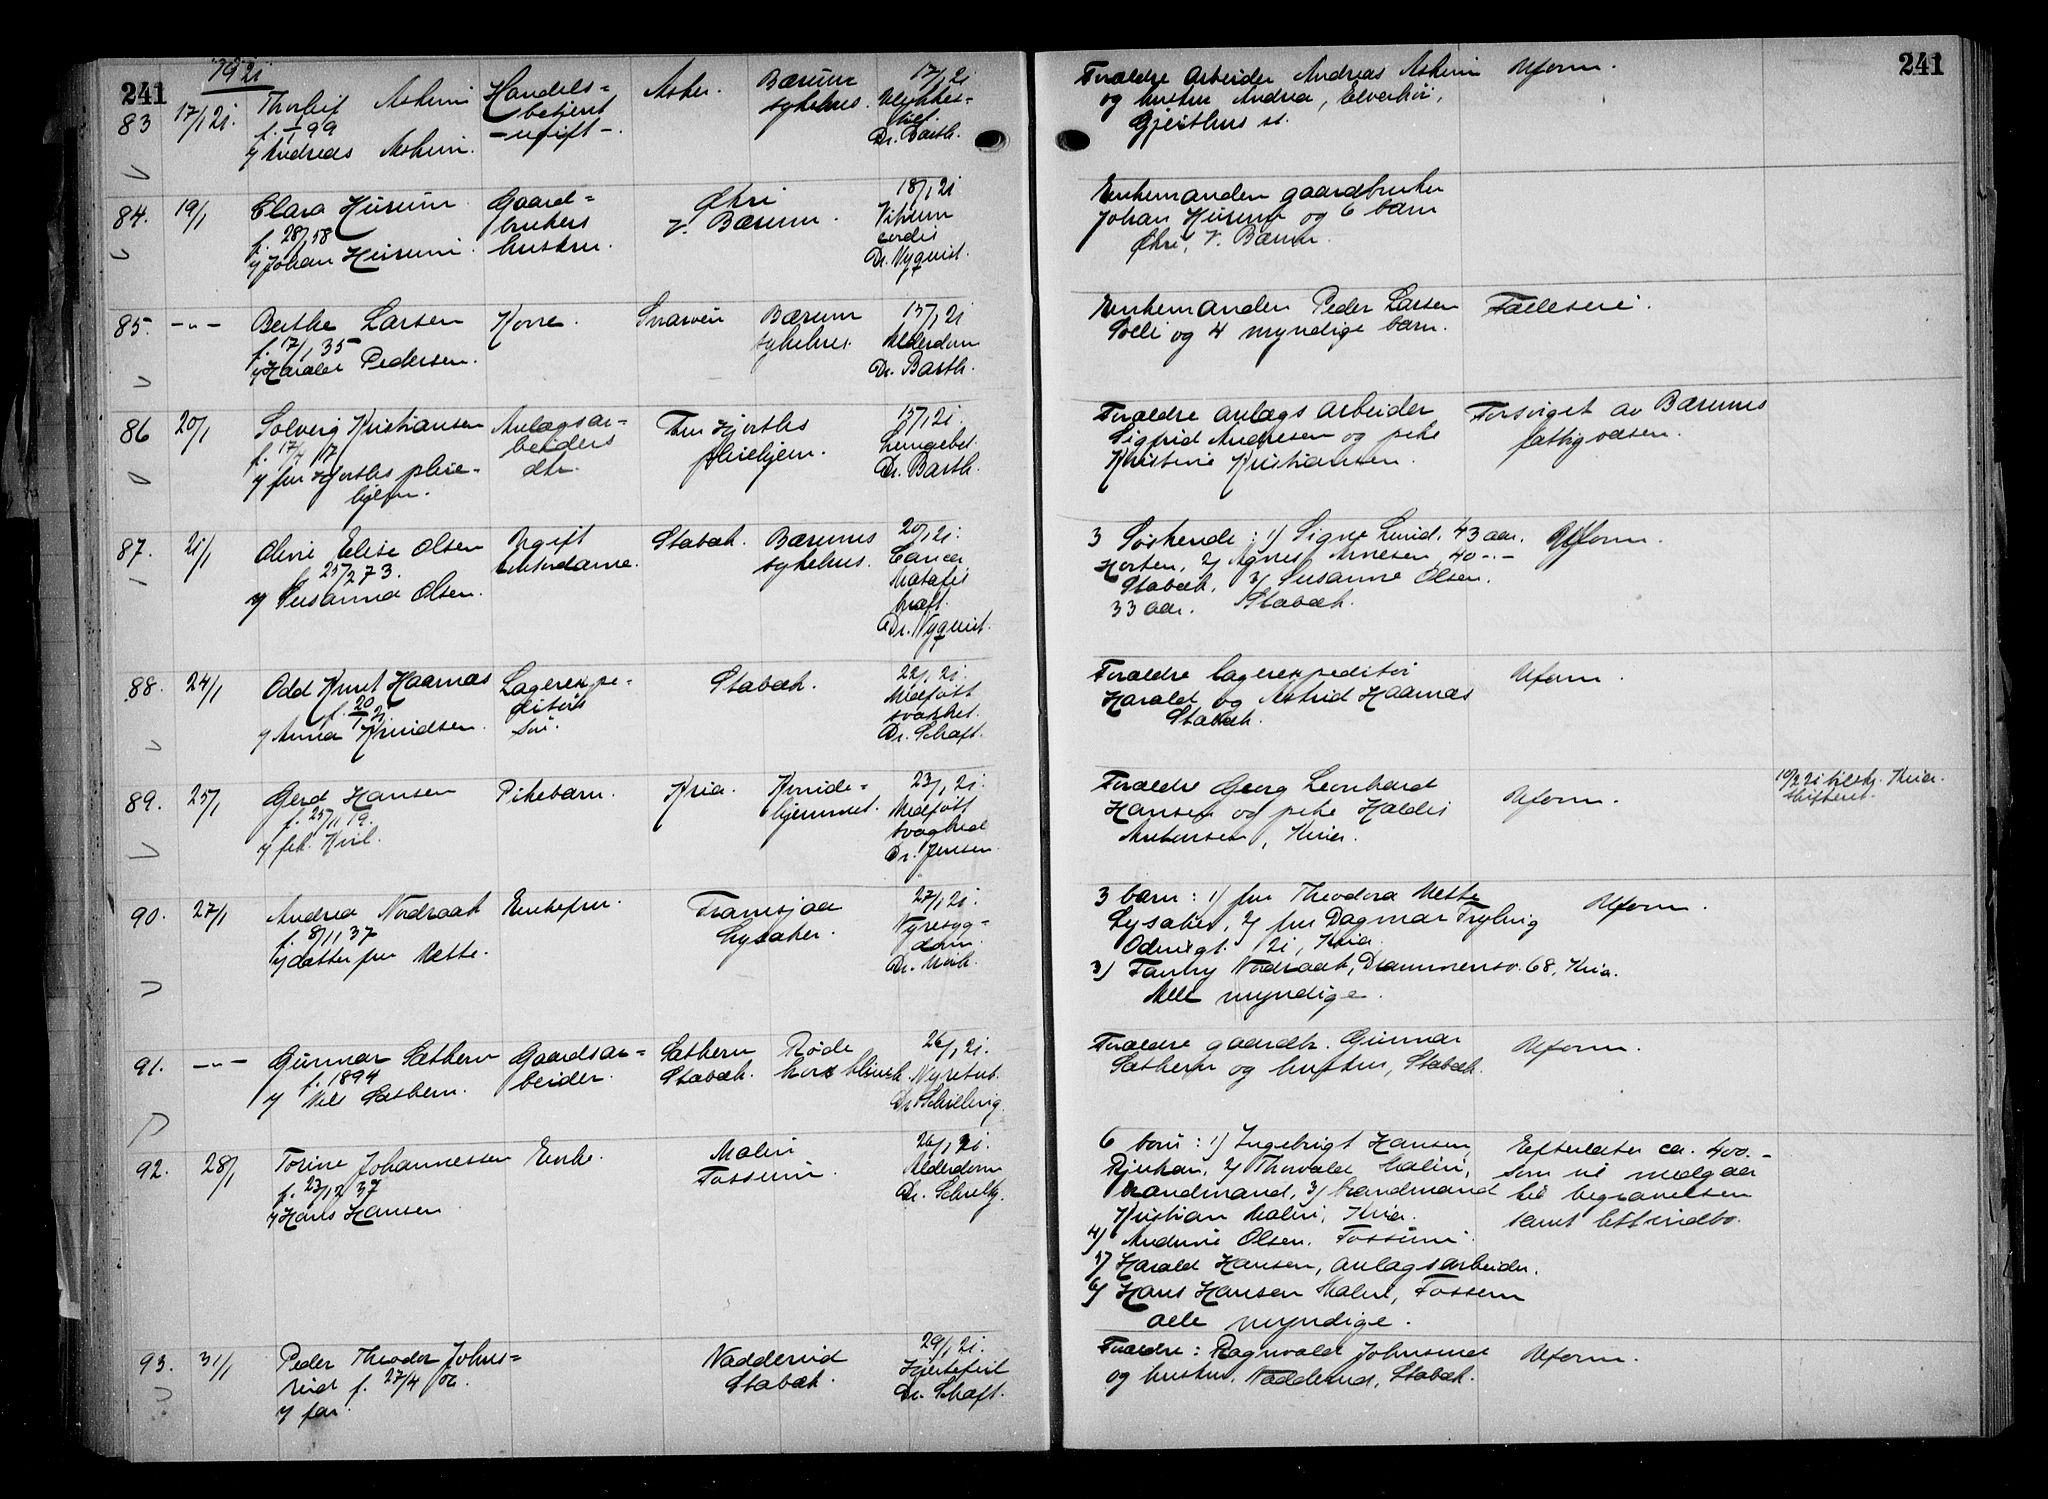 241
1921
241
83
17/1 21.
Thorleif Askim
f. 1/1 99
v/ Andreas Askim.
Handels=
betjent
- ugift -.
Asker.
Bærum
sykehus.
17/1 21
Ulykkes-
Dr. Barth.
Forældre arbeider Andreas Askim
og hustru Andrea, Elverhöi,
Gjeithus st.
Uform.
84.
19/1
Clara Hurum
f. 28/1 58
v/ Johan Hurum.
Gaard=
brukers
hustru.
Økri
V. Bærum.
18/1 21
Vitium
cordis
Dr. Nyquist.
Enkemanden gaardbruker
Johan Hurum og 6 barn
Økri, V. Bærum.
85.
-"-
Berthe Larsen
f. 17/1 35
v/ Harald Pedersen.
Kone.
Snarøen
Bærum
sykehus.
15/1 21
Alderdom
Dr. Barth.
Enkemanden Peder Larsen
og 4 myndige barn.
Fælleseie.
86
20/1
Solveig Kristiansen
f. 17/7 17
v/ fru Hjorths pleie-
hjem.
Anlægsar=
beiders
dtr.
Fru Hjorths
pleiehjem.
15/1 21.
Lungebet.
Dr. Barth.
Forældre anlægsarbeider
Sigfrid Andresen og pike
Kristine Kristiansen.
Forsörget av Bærums
fattigvæsen.
87.
21/1
Olivie Elise Olsen
f. 25/2 73.
v/ Susanna Olsen.
Ugift
kontordame.
Stabæk.
Bærums
sykehus.
20/1 21.
Cancer
kraft.
Dr. Nyquist.
3 Söskende: 1) Signe Lund, 43 aar.
Horten, 2/ Agnes Arnesen, 40 -"-
Stabæk, 3/ Susanne Olsen.
33 aar. Stabæk.
Uform.
88.
24/1
Odd Knut Haarnæs
f. 20/1 21.
v/ Anna Knudsen.
Lagerexpe-
ditörs
sön.
Stabæk.
22/1 21.
Medföt
svakhet.
Dr. Schaft.
Forældre lagerexpeditör
Harald og Astrid Haarnæs
Stabæk.
Uform.
89.
25/1
Gerd Hansen
f. 25/11 19.
v/ frk. Kvil.
Pikebarn.
Kria.
Kvinde=
hjemmet.
23/1 21.
Medföt
svaghed
Dr. Jensen.
Forældre Georg Leonhard
Hansen og pike Haldis
Antonsen, Kria.
Uform.
10/2 21 tilskr. Kria.
skifteret.
90.
27/1
Andrea Nordraak
f. 8/11 37
v/ datter fru Mette.
Enkefru.
Framsjaa
Lysaker.
27/1 21.
Nyresyg-
dom.
3 barn: 1/ fru Theodora Mette
Lysaker, 2/ fru Dagmar Frylvig
Odinsgt. 21, Kria.
3/ Fanny Nordraak, Drammensv. 68, Kria.
Alle myndige.
Uform.
91.
-"-
Gunnar Sæthern
f. 1894
v/ Nils Sæthern.
Gaardsar=
beider.
Sæthern
Stabæk.
Röde
kors klinik.
26/1 21.
Nyretub.
Dr. Schilling.
Forældre gaardbr. Gunnar
Sæthern og hustru, Stabæk.
Uform.
92.
28/1
Torine Johannessen
f. 23/12 37
v/ Hans Hansen
Enke.
Maleri
Fossum.
26/1 21.
Alderdom
6 barn: 1/ Ingebrigt Hansen,
Rjukan, 2/ Thorvald Maleri,
brandmand, 3/ brandmand
Kristian Maleri, Kria.
4/ Andrine Olsen, Fossum.
5/ Harald Hansen, anlægsarbeider.
6/ Hans Hansen Maleri, Fossum
alle myndige.
Efterlater ca. 400.-
som vil medgaa
til begravelsen
samt litt indbo.
93.
31/1
Peder Theodor Johns=
rud f. 27/4 06
v/ far.
Nadderud
Stabæk.
29/1 21.
Hjertefeil
Dr. Schaft.
Forældre: Ragnvald Johnsrud
og hustru, Nadderud, Stabæk.
Uform.